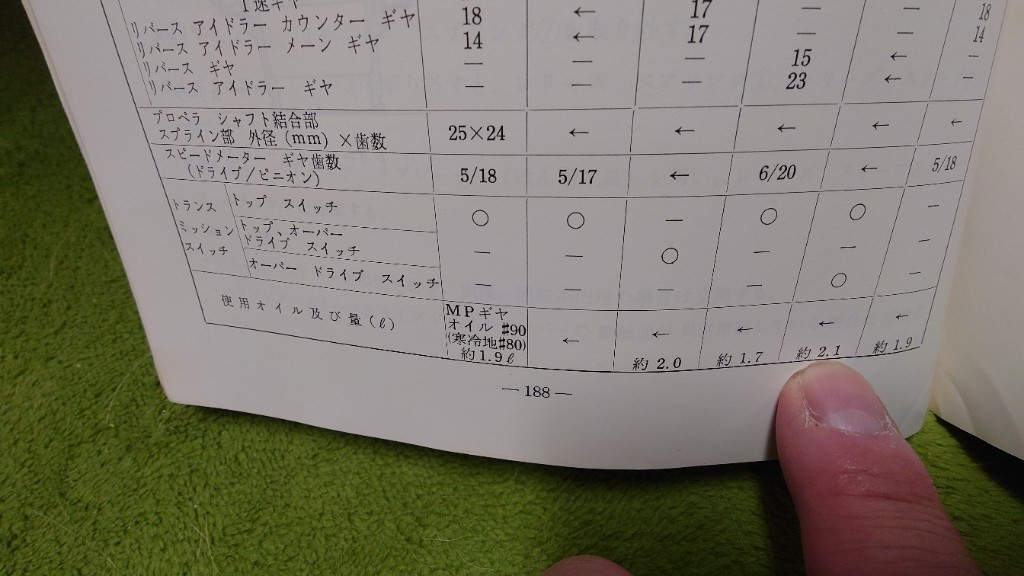 1速ギヤ
リバース アイドラー カウンター ギヤ 18 ← 17 — — 18
リバース アイドラー メーン ギヤ 14 ← 17 — — 14
リバース ギヤ — — — 15 ← —
リバース アイドラー ギヤ — — — 23 ← —
プロペラ シャフト結合部
スプライン部 外径(mm)×歯数 25×24 ← ← ← ← ←
スピードメーター ギヤ歯数
(ドライブ/ピニオン) 5/18 5/17 ← 6/20 ← 5/18
トランス
ミッション
スイッチ
トップ スイッチ ○ ○ — ○ ○ —
トップ、オーバー
ドライブ スイッチ — — ○ — — —
オーバー ドライブ スイッチ — — — — ○ —
使用オイル及び量(ℓ)
MPギヤ
オイル #90
(寒冷地#80)
約1.9ℓ
← ← ← ← ←
約2.0 約1.7 約2.1 約1.9
—188—